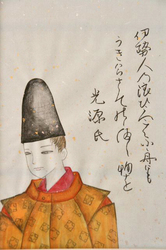 伊勢人の浪のうへこく小舟にも
うきめはからてのらまし物を
光源氏